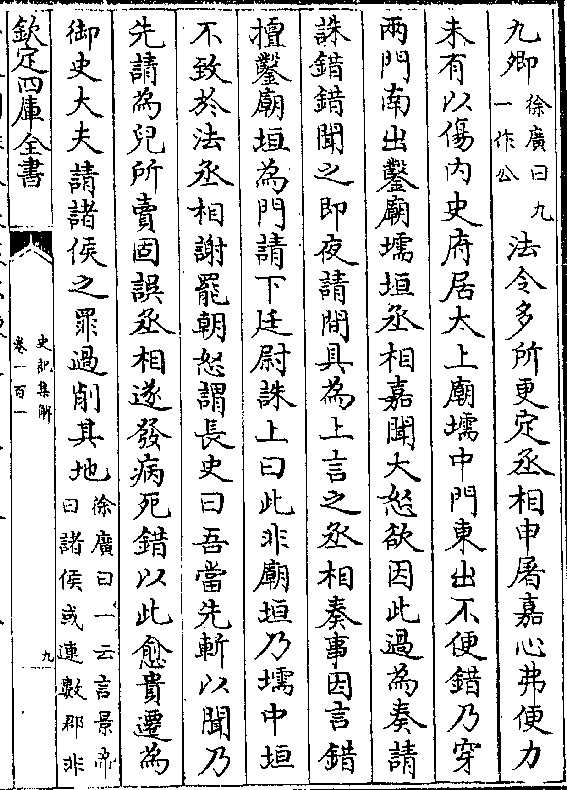 九卿徐廣曰九
一作公法令多所更定丞相申屠嘉心弗便力
未有以傷内史府居太上廟壖中門東出不便錯乃穿
兩門南出鑿廟壖垣丞相嘉聞大怒欲因此過為奏請
誅錯錯聞之即夜請間具為上言之丞相奏事因言錯
擅鑿廟垣為門請下廷尉誅上曰此非廟垣乃壖中垣
不致於法丞相謝罷朝怒謂長史曰吾當先斬以聞乃
先請為兒所賣固誤丞相遂發病死錯以此愈貴遷為
御史大夫請諸侯之罪過削其地徐廣曰一云言景帝
曰諸侯或連數郡非
欽定四庫全書
史記集解
卷一百一
九